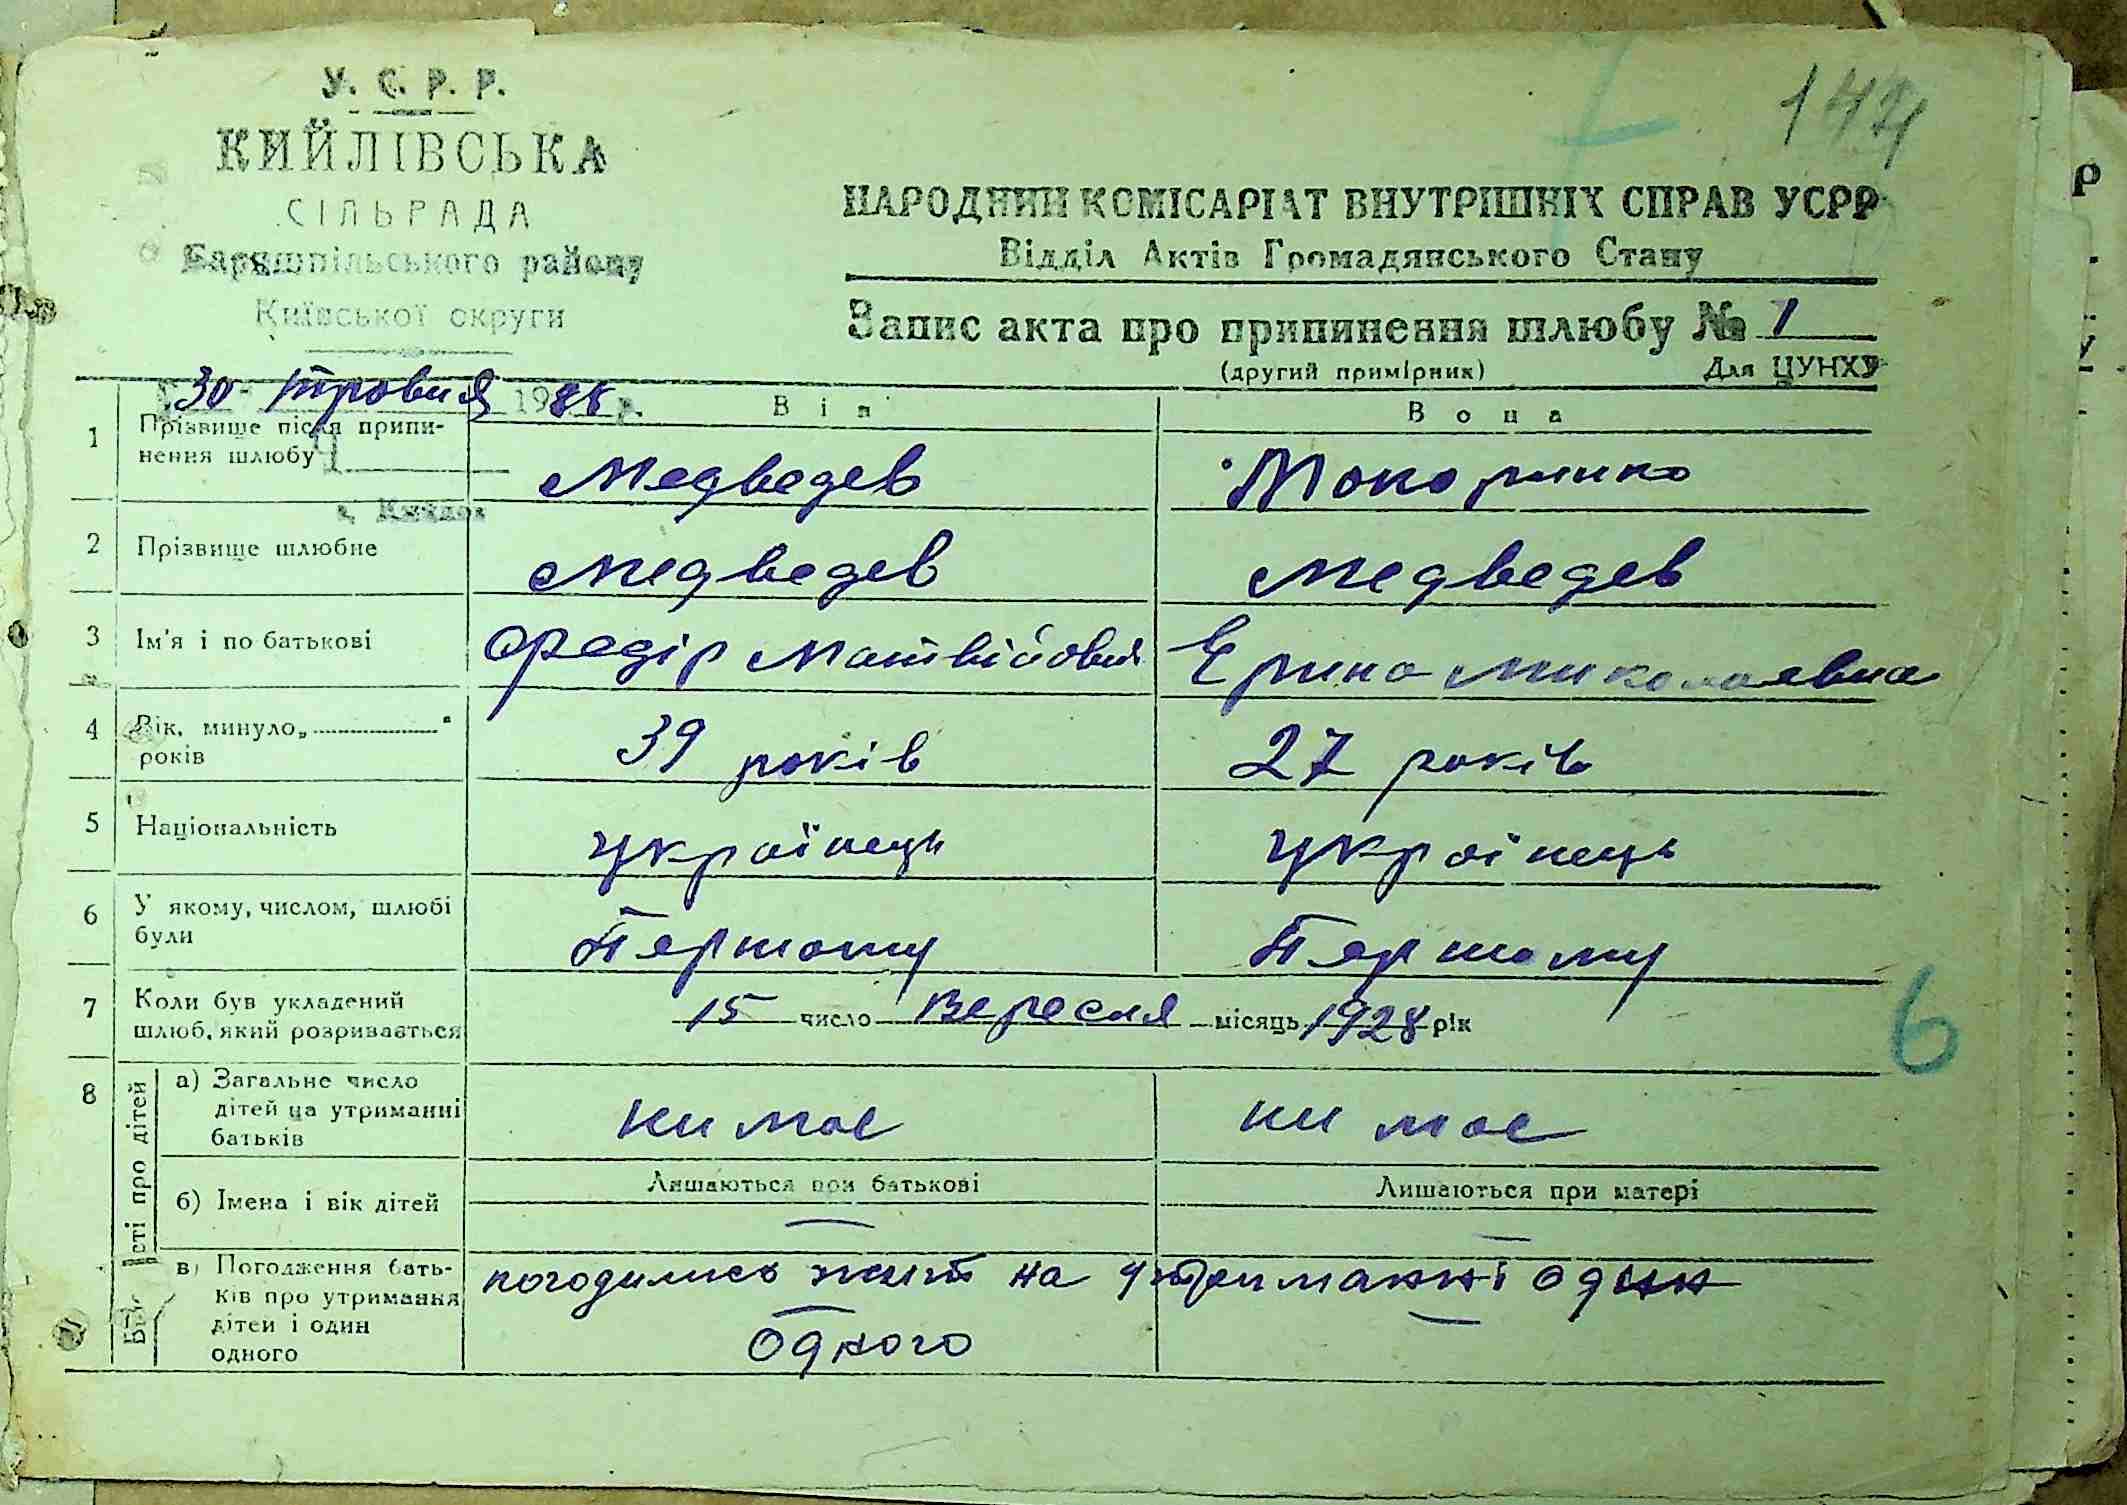 У. С. Р. Р.
КИЙЛІВСЬКА
СІЛЬРАДА
Баришпільського району
Київської округи
144
НАРОДНИЙ КОМІСАРІАТ ВНУТРІШНІХ СПРАВ УСРР
Відділ Актів Громадянського Стану
Запис акта про припинення шлюбу № 1
(другий примірник) Для ЦУНХУ
30 травня 19 р.
Він Вона
1 Прізвище після припи-
нення шлюбу Медведев
2 Прізвище шлюбне Медведев Медведев
3 Ім'я і по батькові Федір Матвійович Ерина Миколаевна
4 Вік, минуло „ “
років 39 років 27 років
5 Національність українець українець
6 У якому, числом, шлюбі
були Першому Першому
7 Коли був укладений
шлюб, який розривається 15 число Вересня місяць 1928 рік
6
8 сті про дітей
а) Загальне число
дітей на утриманні
батьків ни мае ни мае
Лишаються при батькові Лишаються при матері
б) Імена і вік дітей — —
в) Погодження бать-
ків про утримання
дітей і один
одного
погодились жит на утриманні один
одного